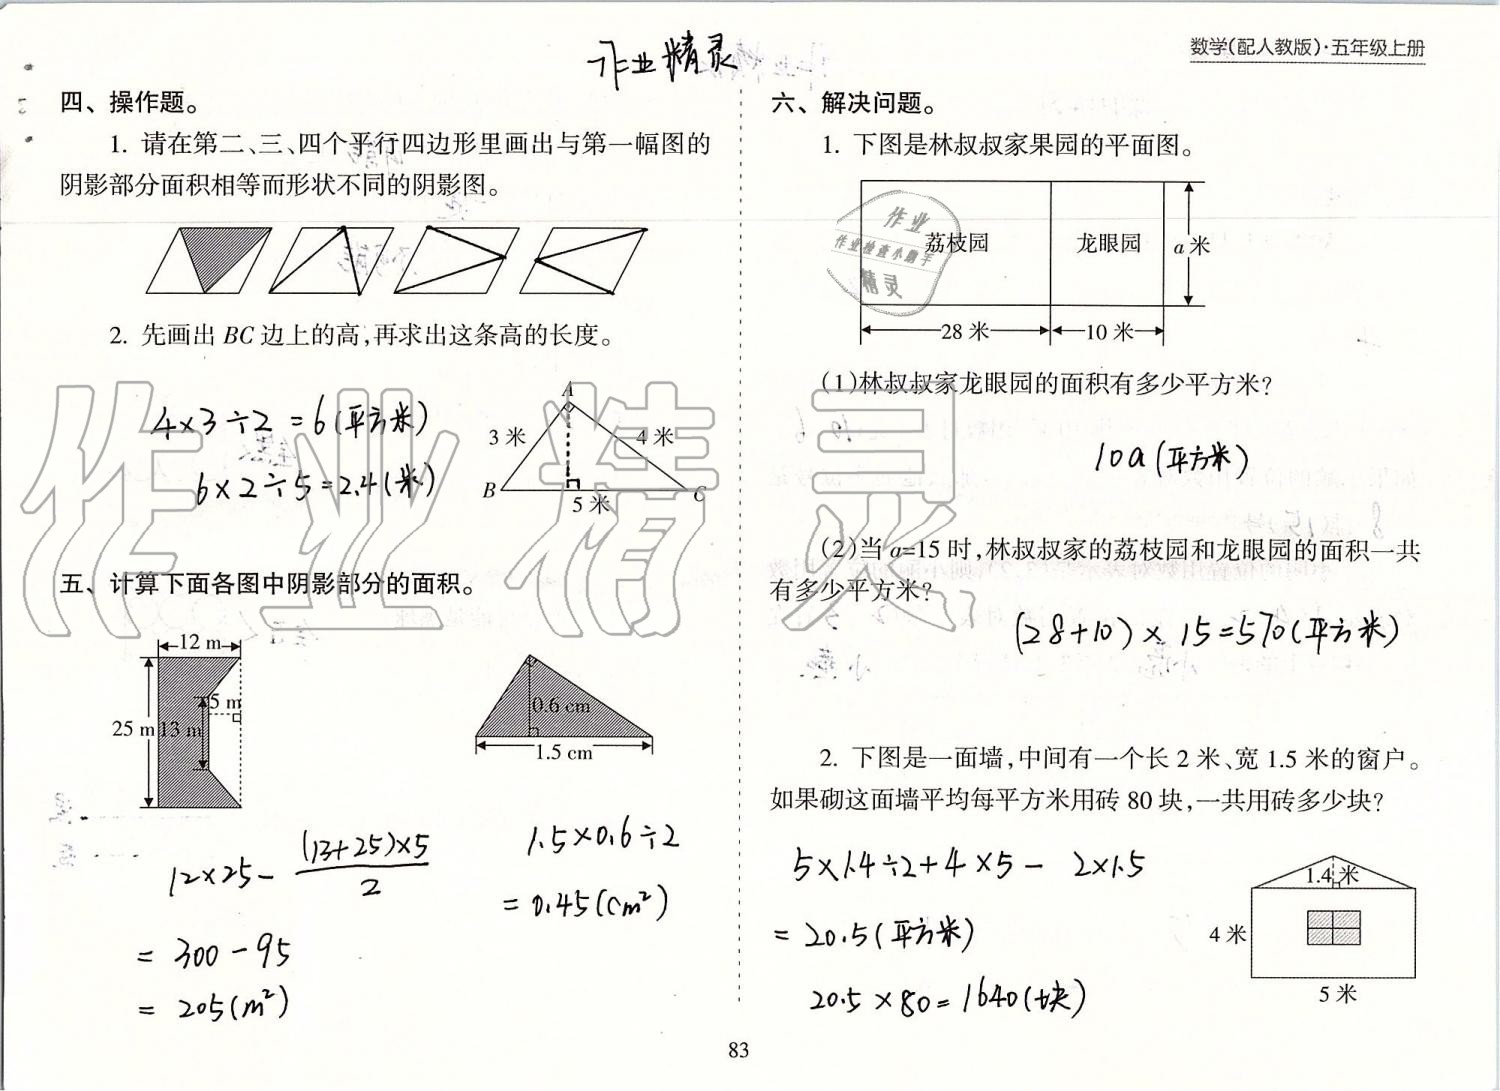 作业精灵
数学(配人教版)·五年级上册
四、操作题。
1. 请在第二、三、四个平行四边形里画出与第一幅图的
阴影部分面积相等而形状不同的阴影图。
2. 先画出 BC 边上的高,再求出这条高的长度。
4×3÷2=6(平方米)
6×2÷5=2.4(米)
A
3 米
4 米
B
C
5 米
五、计算下面各图中阴影部分的面积。
12 m
5 m
25 m
13 m
0.6 cm
1.5 cm
12×25- (13+25)×5
2
= 300-95
= 205(m²)
1.5×0.6÷2
= 0.45(cm²)
六、解决问题。
1. 下图是林叔叔家果园的平面图。
荔枝园
龙眼园
a 米
28 米
10 米
作业
作业检查小帮手
精灵
(1)林叔叔家龙眼园的面积有多少平方米?
10a(平方米)
(2)当 a=15 时,林叔叔家的荔枝园和龙眼园的面积一共
有多少平方米?
(28+10)×15=570(平方米)
2. 下图是一面墙,中间有一个长 2 米、宽 1.5 米的窗户。
如果砌这面墙平均每平方米用砖 80 块,一共用砖多少块?
5×1.4÷2+4×5- 2×1.5
= 20.5(平方米)
20.5×80=1640(块)
1.4 米
4 米
5 米
作业精灵
83